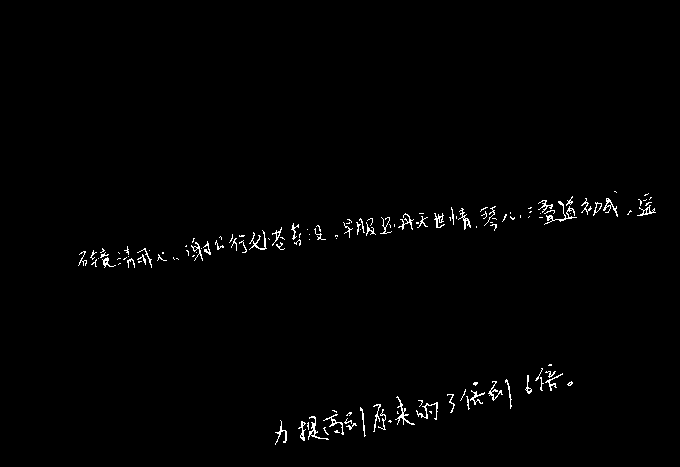 石镜清我心，谢公行处苍苔没。早服还丹无世情，琴心三叠道初成，遥
力提高到原来的3倍到6倍。